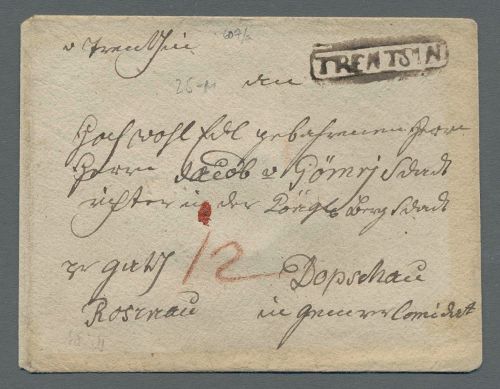 v Trentschin
TRENTSIN
an
Hoch wohl Edl gebohrenen Herrn
Herrn Jacob v Gömöri Stadt
richter in der Königl Berg Stadt
12
Dopschau
Rosenau
in Gemerer Comidat